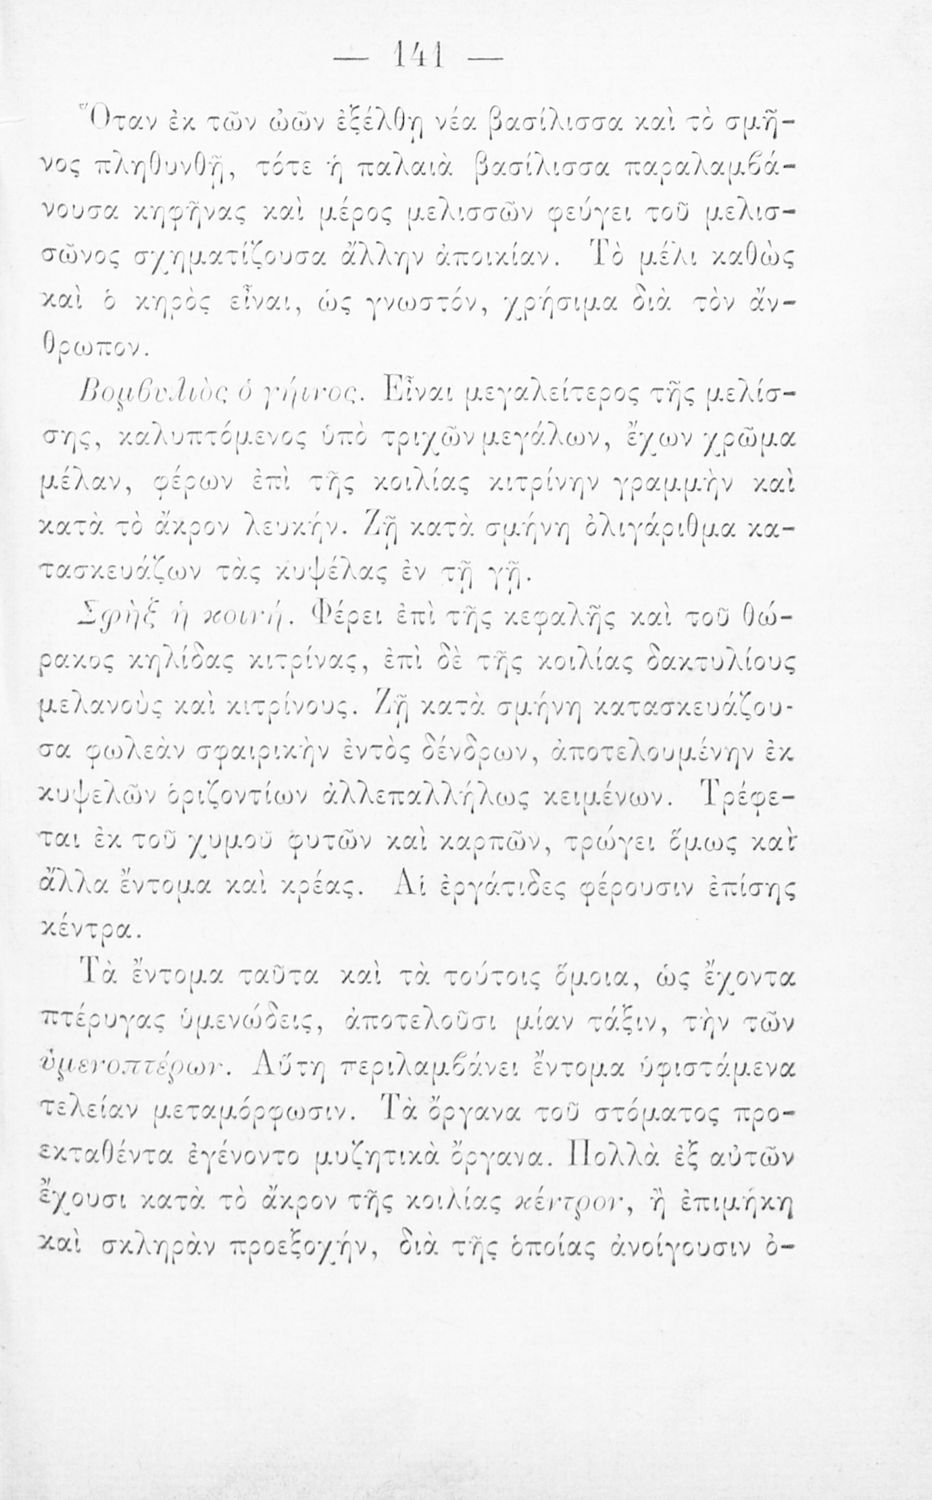 — 141 —
Ὅταν ἐκ τῶν ὠῶν ἐξέλθῃ νέα βασίλισσα καὶ τὸ σμῆ-
νος πληθυνθῇ, τότε ἡ παλαιὰ βασίλισσα παραλαμβά-
νουσα κηφῆνας καὶ μέρος μελισσῶν φεύγει τοῦ μελισ-
σῶνος σχηματίζουσα ἄλλην ἀποικίαν. Τὸ μέλι καθὼς
καὶ ὁ κηρὸς εἶναι, ὡς γνωστόν, χρήσιμα διὰ τὸν ἄν-
θρωπον.
Βομβυλιὸς ὁ γήινος. Εἶναι μεγαλείτερος τῆς μελίσ-
σης, καλυπτόμενος ὑπὸ τριχῶν μεγάλων, ἔχων χρῶμα
μέλαν, φέρων ἐπὶ τῆς κοιλίας κιτρίνην γραμμὴν καὶ
κατὰ τὸ ἄκρον λευκήν. Ζῇ κατὰ σμήνη ὀλιγάριθμα κα-
τασκευάζων τὰς κυψέλας ἐν τῇ γῇ.
Σφὴξ ἡ κοινή. Φέρει ἐπὶ τῆς κεφαλῆς καὶ τοῦ θώ-
ρακος κηλίδας κιτρίνας, ἐπὶ δὲ τῆς κοιλίας δακτυλίους
μελανοὺς καὶ κιτρίνους. Ζῇ κατὰ σμήνη κατασκευάζου-
σα φωλεὰν σφαιρικὴν ἐντὸς δένδρων, ἀποτελουμένην ἐκ
κυψελῶν ὁριζοντίων ἀλλεπαλλήλως κειμένων. Τρέφε-
ται ἐκ τοῦ χυμοῦ φυτῶν καὶ καρπῶν, τρώγει ὅμως καὶ
ἄλλα ἔντομα καὶ κρέας. Αἱ ἐργάτιδες φέρουσιν ἐπίσης
κέντρα.
Τὰ ἔντομα ταῦτα καὶ τὰ τούτοις ὅμοια, ὡς ἔχοντα
πτέρυγας ὑμενώδεις, ἀποτελοῦσι μίαν τάξιν, τὴν τῶν
ὑμενοπτέρων. Αὕτη περιλαμβάνει ἔντομα ὑφιστάμενα
τελείαν μεταμόρφωσιν. Τὰ ὄργανα τοῦ στόματος προ-
εκταθέντα ἐγένοντο μυζητικὰ ὄργανα. Πολλὰ ἐξ αὐτῶν
ἔχουσι κατὰ τὸ ἄκρον τῆς κοιλίας κέντρον, ἢ ἐπιμήκη
καὶ σκληρὰν προεξοχήν, διὰ τῆς ὁποίας ἀνοίγουσιν ὀ-